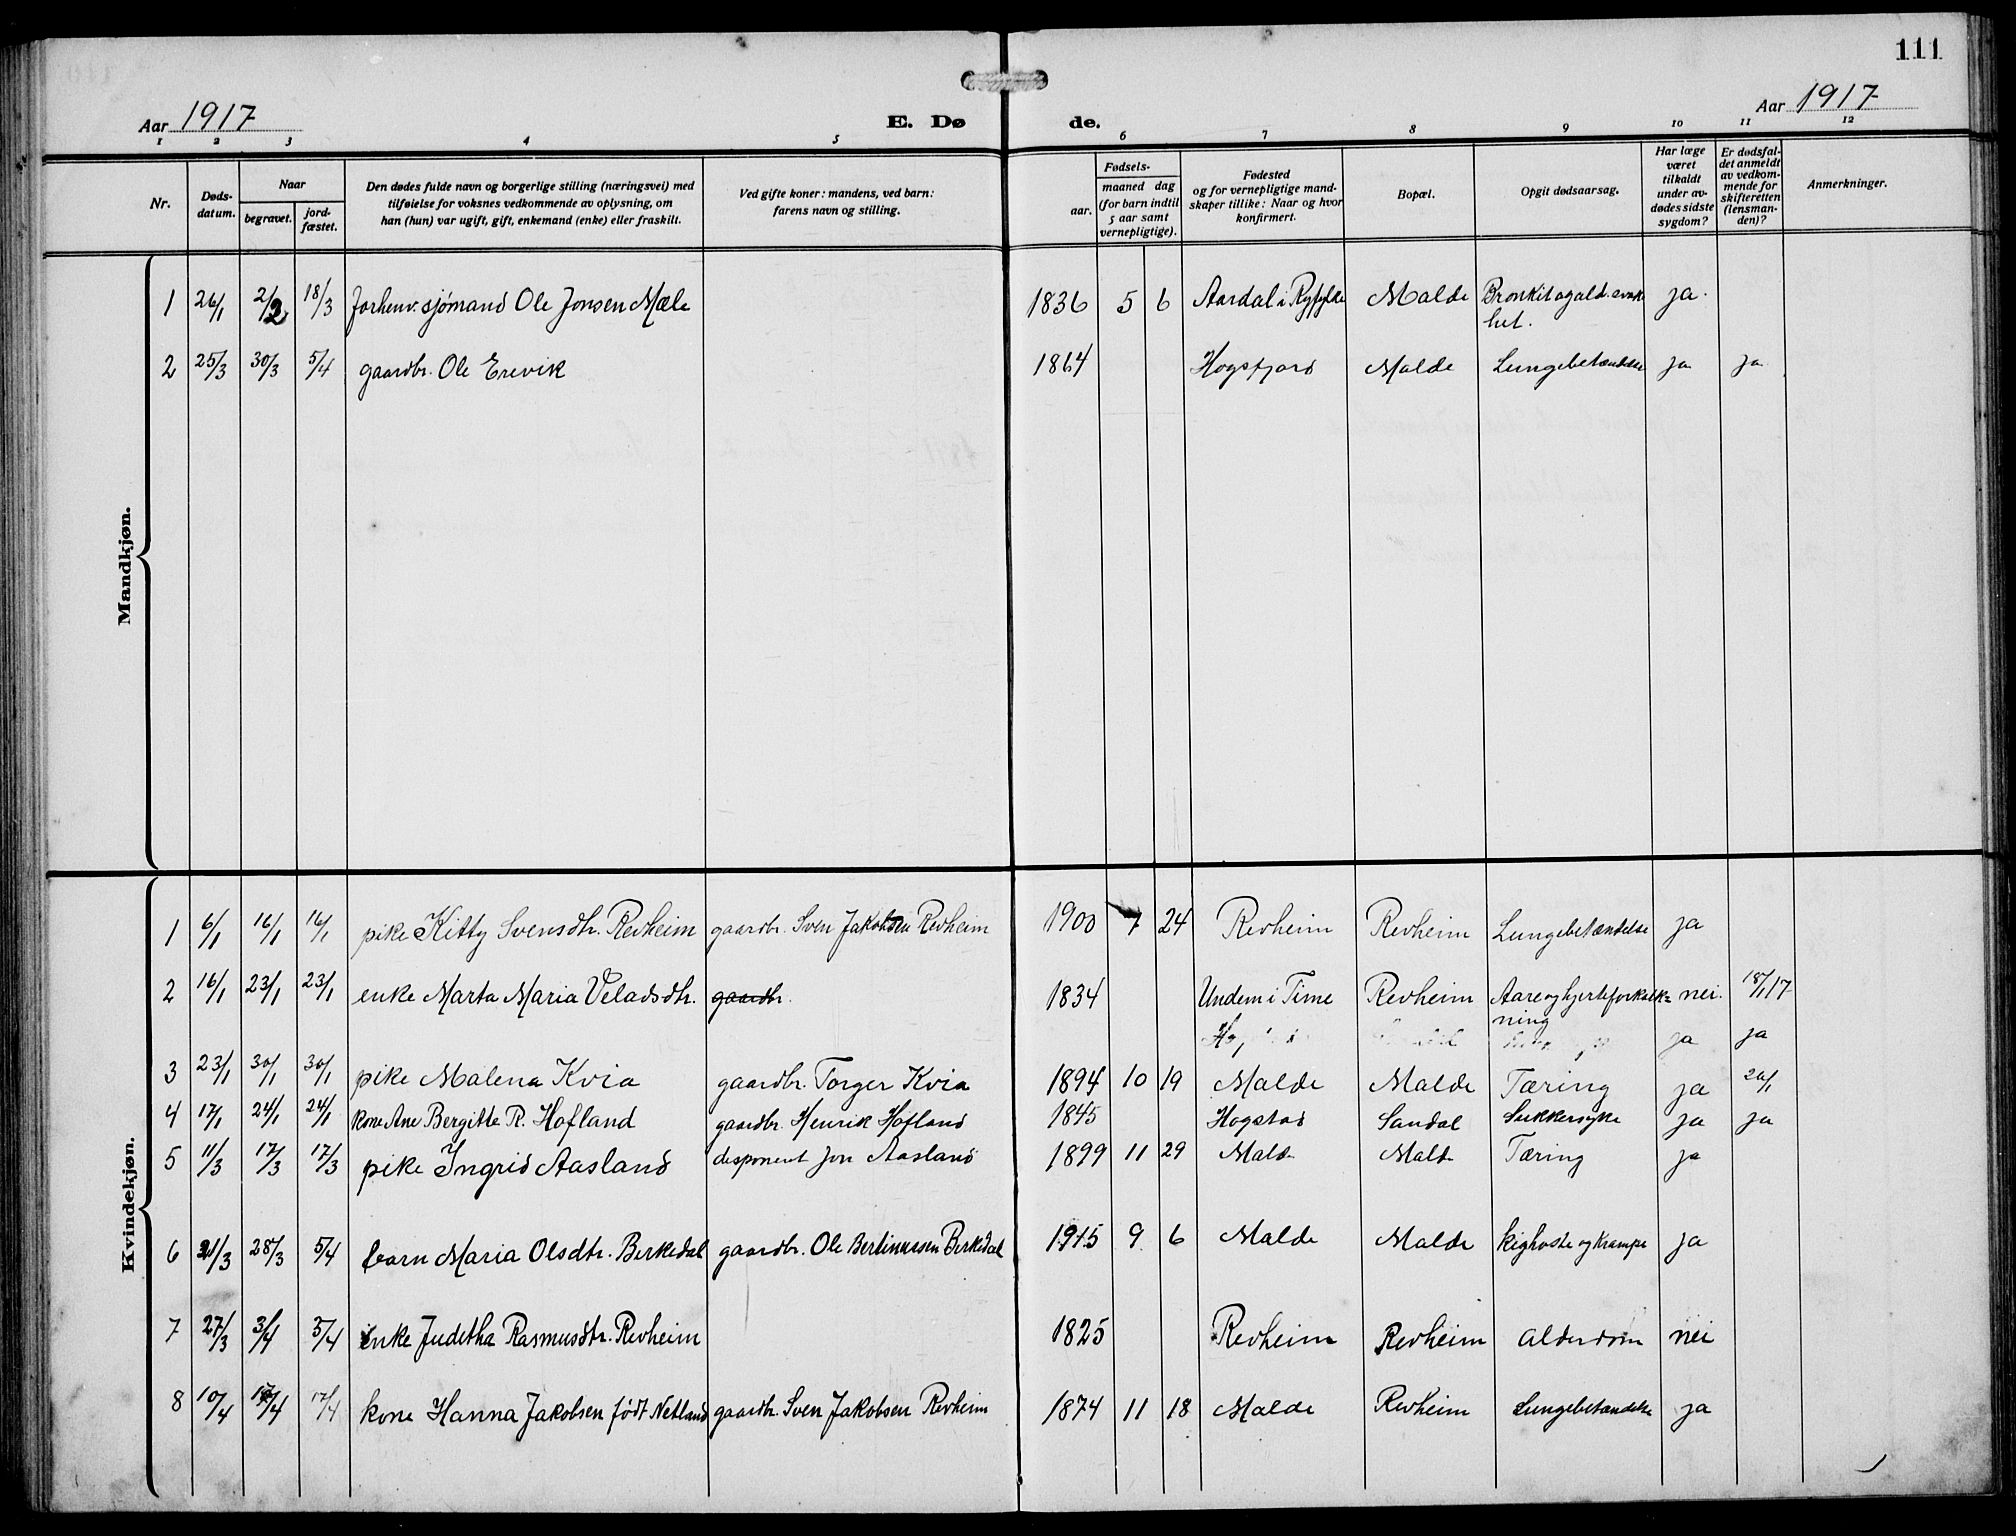 111
Aar 1917
E. Dø de.
Aar 1917
1 2 3 4 5 6 7 8 9 10 11 12
Nr.
Døds-
datum.
Naar
begravet.
jord-
fæstet.
Den dødes fulde navn og borgerlige stilling (næringsvei) med
tilføielse for voksnes vedkommende av oplysning, om
han (hun) var ugift, gift, enkemand (enke) eller fraskilt.
Ved gifte koner: mandens, ved barn:
farens navn og stilling.
Fødsels-
aar.
maaned dag
(for barn indtil
5 aar samt
vernepligtige).
Fødested
og for vernepligtige mand-
skaper tillike: Naar og hvor
konfirmert.
Bopæl.
Opgit dødsaarsag.
Har læge
været
tilkaldt
under av-
dødes sidste
sygdom?
Er dødsfal-
det anmeldt
av vedkom-
mende for
skifteretten
(lensman-
den)?
Anmerkninger.
Mandkjøn.
1 26/1 2/2 18/3 forhenv. sjømand Ole Jonsen Mæle 1836 5 6 Aardal i Ryfylke Malde Bronkit og ald. svak
het. ja.
2 25/3 30/3 5/4 gaardbr. Ole Erevik 1864 Høgsfjord Malde Lungebetændelse ja ja
Kvindekjøn.
1 6/1 16/1 16/1 pike Kitty Svensdtr. Revheim gaardbr. Sven Jakobsen Revheim 1900 7 24 Revheim Revheim Lungebetændelse ja
2 16/1 23/1 23/1 enke Marta Maria Veladsdtr. gaardbr. 1834 Undem i Time Revheim Aare og hjerteforkalk-
ning nei. 18/1 17
ja ja
3 23/1 30/1 30/1 pike Malena Kvia gaardbr. Torger Kvia 1894 10 19 Malde Malde Tæring ja 26/1
4 17/1 24/1 24/1 kone Ane Bergitte R. Hofland gaardbr. Henrik Hofland 1845 Hogstad Sandal Sukkersyke ja ja
5 11/3 17/3 17/3 pike Ingrid Aasland desponent Jon Aasland 1899 11 29 Malde Malde Tæring ja
6 21/3 28/3 5/4 barn Maria Olsdtr. Birkedal gaardbr. Ole Berlinussen Birkedal 1915 9 6 Malde Malde kighoste og krampe ja
7 27/3 3/4 3/4 enke Juditha Rasmusdtr. Revheim 1825 Revheim Revheim Alderdom nei
8 10/4 17/4 17/4 kone Hanna Jakobsen født Netland gaardbr. Sven Jakobsen Revheim 1874 11 18 Malde Revheim Lungebetændelse ja